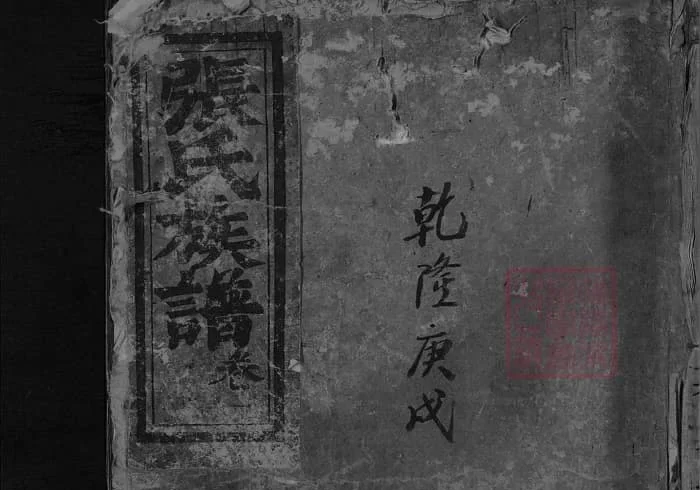 乾隆庚戌
張氏族譜
卷一